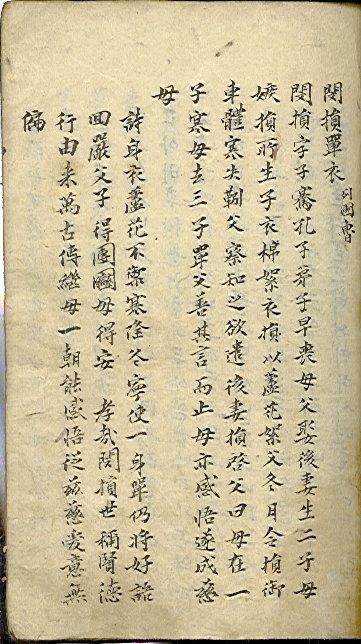 閔損單衣 列國魯
閔損字子騫孔子弟子早喪母父娶後妻生二子母
嫉損所生子衣棉絮衣損以蘆花絮父冬日令損御
車體寒失靷父察知之欲遣後妻損啓父曰母在一
子寒母去三子單父善其言而止母亦感悟遂成慈
母
詩身衣蘆花不禦寒隆冬寧使一身單仍將好語
回嚴父子得團圞母得安 孝哉閔損世稱賢德
行由来萬古傳継母一朝能感悟従兹慈愛意無
偏